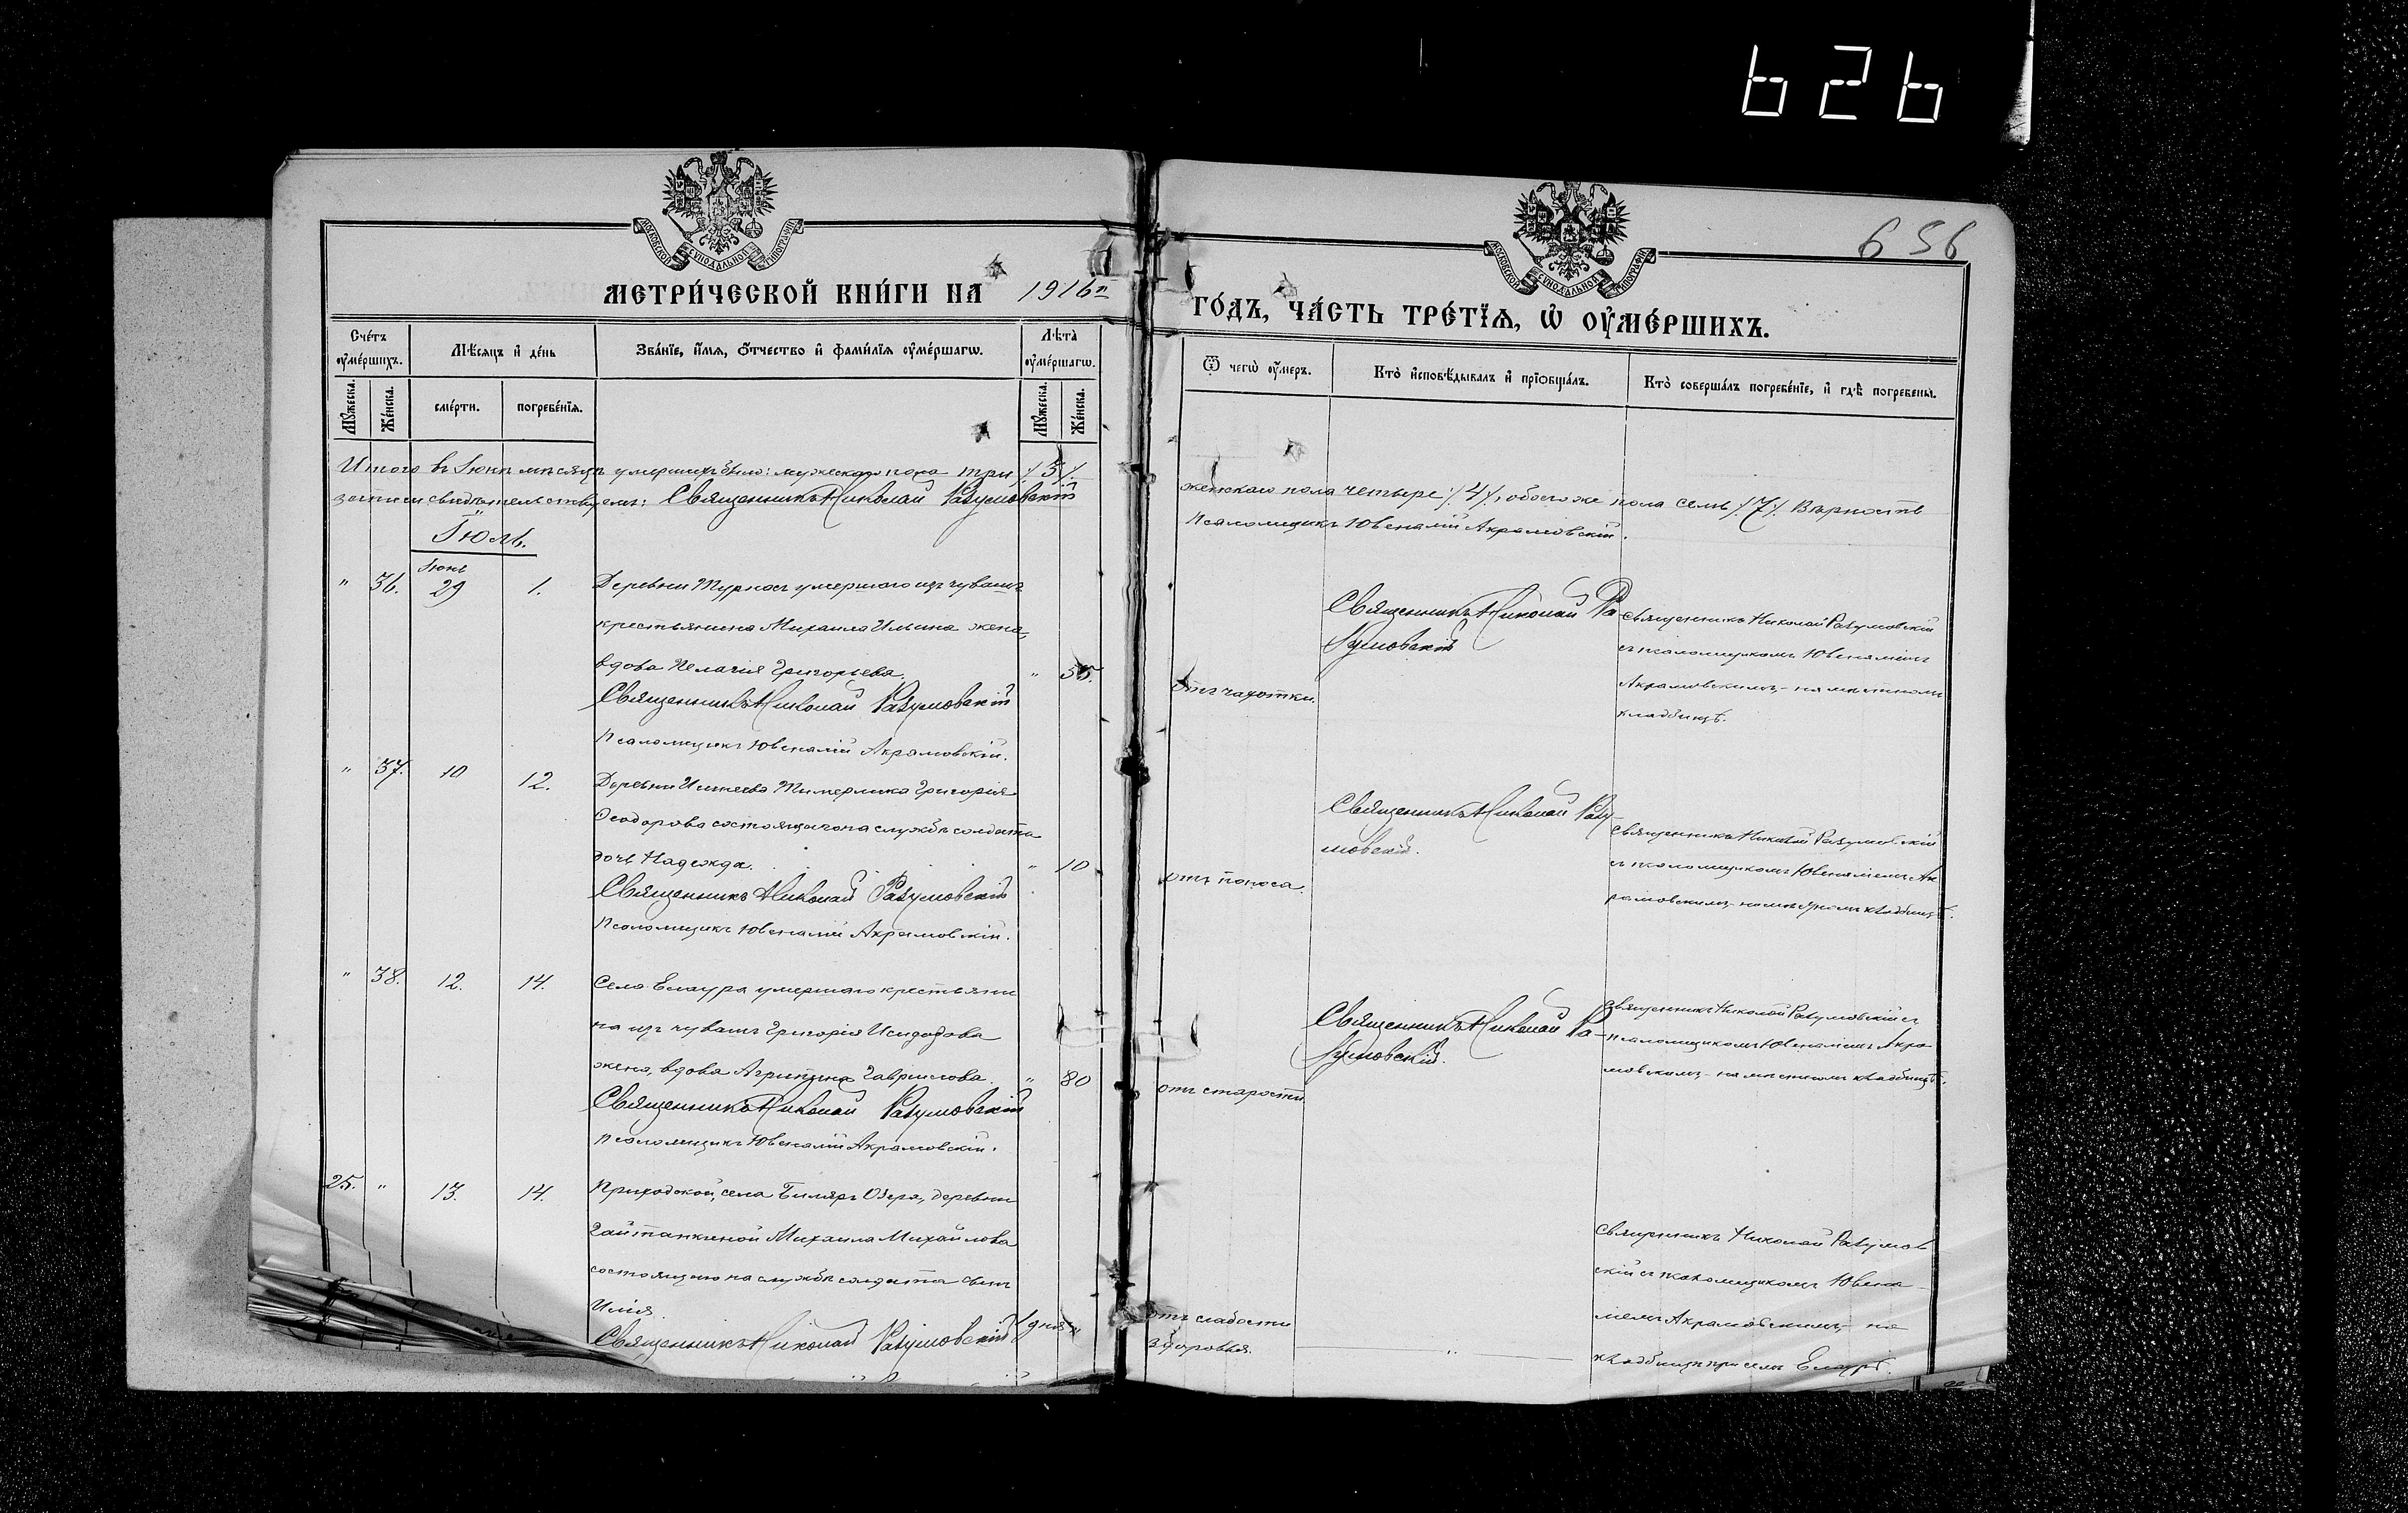 626
656
МОСКОВСКОЙ СѴНОДАЛЬНОЙ ТИПОГРАФІИ
МОСКОВСКОЙ СѴНОДАЛЬНОЙ ТИПОГРАФІИ
МЕТРИ́ЧЕСКОЙ КНИ́ГИ НА 1916й
ГО́ДЪ, ЧА́СТЬ ТРЕ́ТЇѦ, Ѽ ОУ҆МЕ́РШИХЪ.
Сче́тъ оу҆ме́ршихъ.
Мѣ́сѧцъ и҆ де́нь
Зва́нїе, и҆́мѧ, ѻ҆́тчество и҆ фами́лїѧ оу҆ме́ршагѡ.
Лѣ́та оу҆ме́ршагѡ.
Ѿ чегѡ̀ оу҆́меръ.
Кто̀ и҆сповѣ́дывалъ и҆ прїѻбща́лъ.
Кто̀ соверша́лъ погребе́нїе, и҆ гдѣ̀ погребены̀.
Мꙋ́жеска.
Же́нска.
сме́рти.
погребе́нїѧ.
Мꙋ́жеска.
Же́нска.
Итого въ Іюнѣ мѣсяцѣ умершихъ было: мужескаго пола три /3/.
женскаго пола четыре /4/, обоего же пола семь /7/. Вѣрность
записи свидѣтельствуемъ: Священникъ Николай Разумовскій
Псаломщикъ Ювеналій Акрамовскій.
Іюль.
Іюнь
" 36. 29 1. Деревни Турнасъ умершаго изъ чувашъ
крестьянина Михаила Ильина жена,
вдова Пелагія Григорьева. "
Священникъ Николай Разумовскій
Псаломщикъ Ювеналій Акрамовскій.
отъ чахотки.
Священникъ Николай Ра-
зумовскій
Священникъ Николай Разумовскій
съ псаломщикомъ Ювеналіемъ
Акрамовскимъ, - на мѣстномъ
кладбищѣ.
" 37. 10 12. Деревни Ишнеева Тимерлика Григорія
Ѳеодорова состоящаго на службѣ солдата
дочь Надежда. " 10
Священникъ Николай Разумовскій
Псаломщикъ Ювеналій Акрамовскій.
отъ поноса.
Священникъ Николай Разу-
мовскій.
Священникъ Николай Разумовскій
съ псаломщикомъ Ювеналіемъ Ак
рамовскимъ, на мѣстномъ кладбищѣ.
" 38. 12. 14. Село Елаура умершаго крестьяни
на изъ чувашъ Григорія Исидорова
жена, вдова Агрипина Гаврилова. " 80
Священникъ Николай Разумовскій
Псаломщикъ Ювеналій Акрамовскій.
отъ старости.
Священникъ Николай Ра-
зумовскій.
Священникъ Николай Разумовскій съ
псаломщикомъ Ювеналіемъ Акра
мовскимъ, - на мѣстномъ кладбищѣ.
25. " 13. 14. Приходской, села Биляръ Озера, деревни
Михаила Михайлова
состоящаго на службѣ солдата сынъ
Илія
Священникъ Николай Разумовскій
отъ слабости
здоровья.
"
Священникъ Николай Разумов
скій съ псаломщикомъ Ювена-
ліемъ Акрамовскимъ, - на
кладбищѣ при селѣ Елаурѣ.